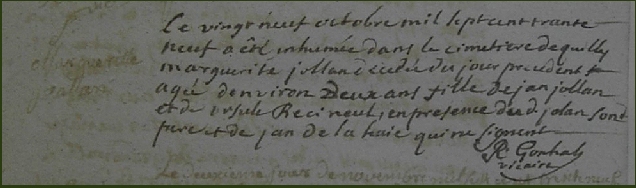 Le vingt neuf octobre mil sept cent trante
neuf a été inhumée dans le cimetiere de quilly
marguerite
jollan
marguerite jollan décédée du jour precedent
agée d'environ Deux ans fille de jan jollan
et de ursule Recineul, en presence dud jolan son
pere et de jan de la haie qui ne signent
R. Gouhal
vicaire
Le deuxieme jour de novembre mil sept cent